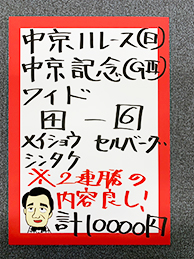 中京11レース(日)
中京記念(GⅢ)
ワイド
⑭ー⑥
メイショウ セルバーグ
シンタケ
※2連勝の
内容良し!
計10000円